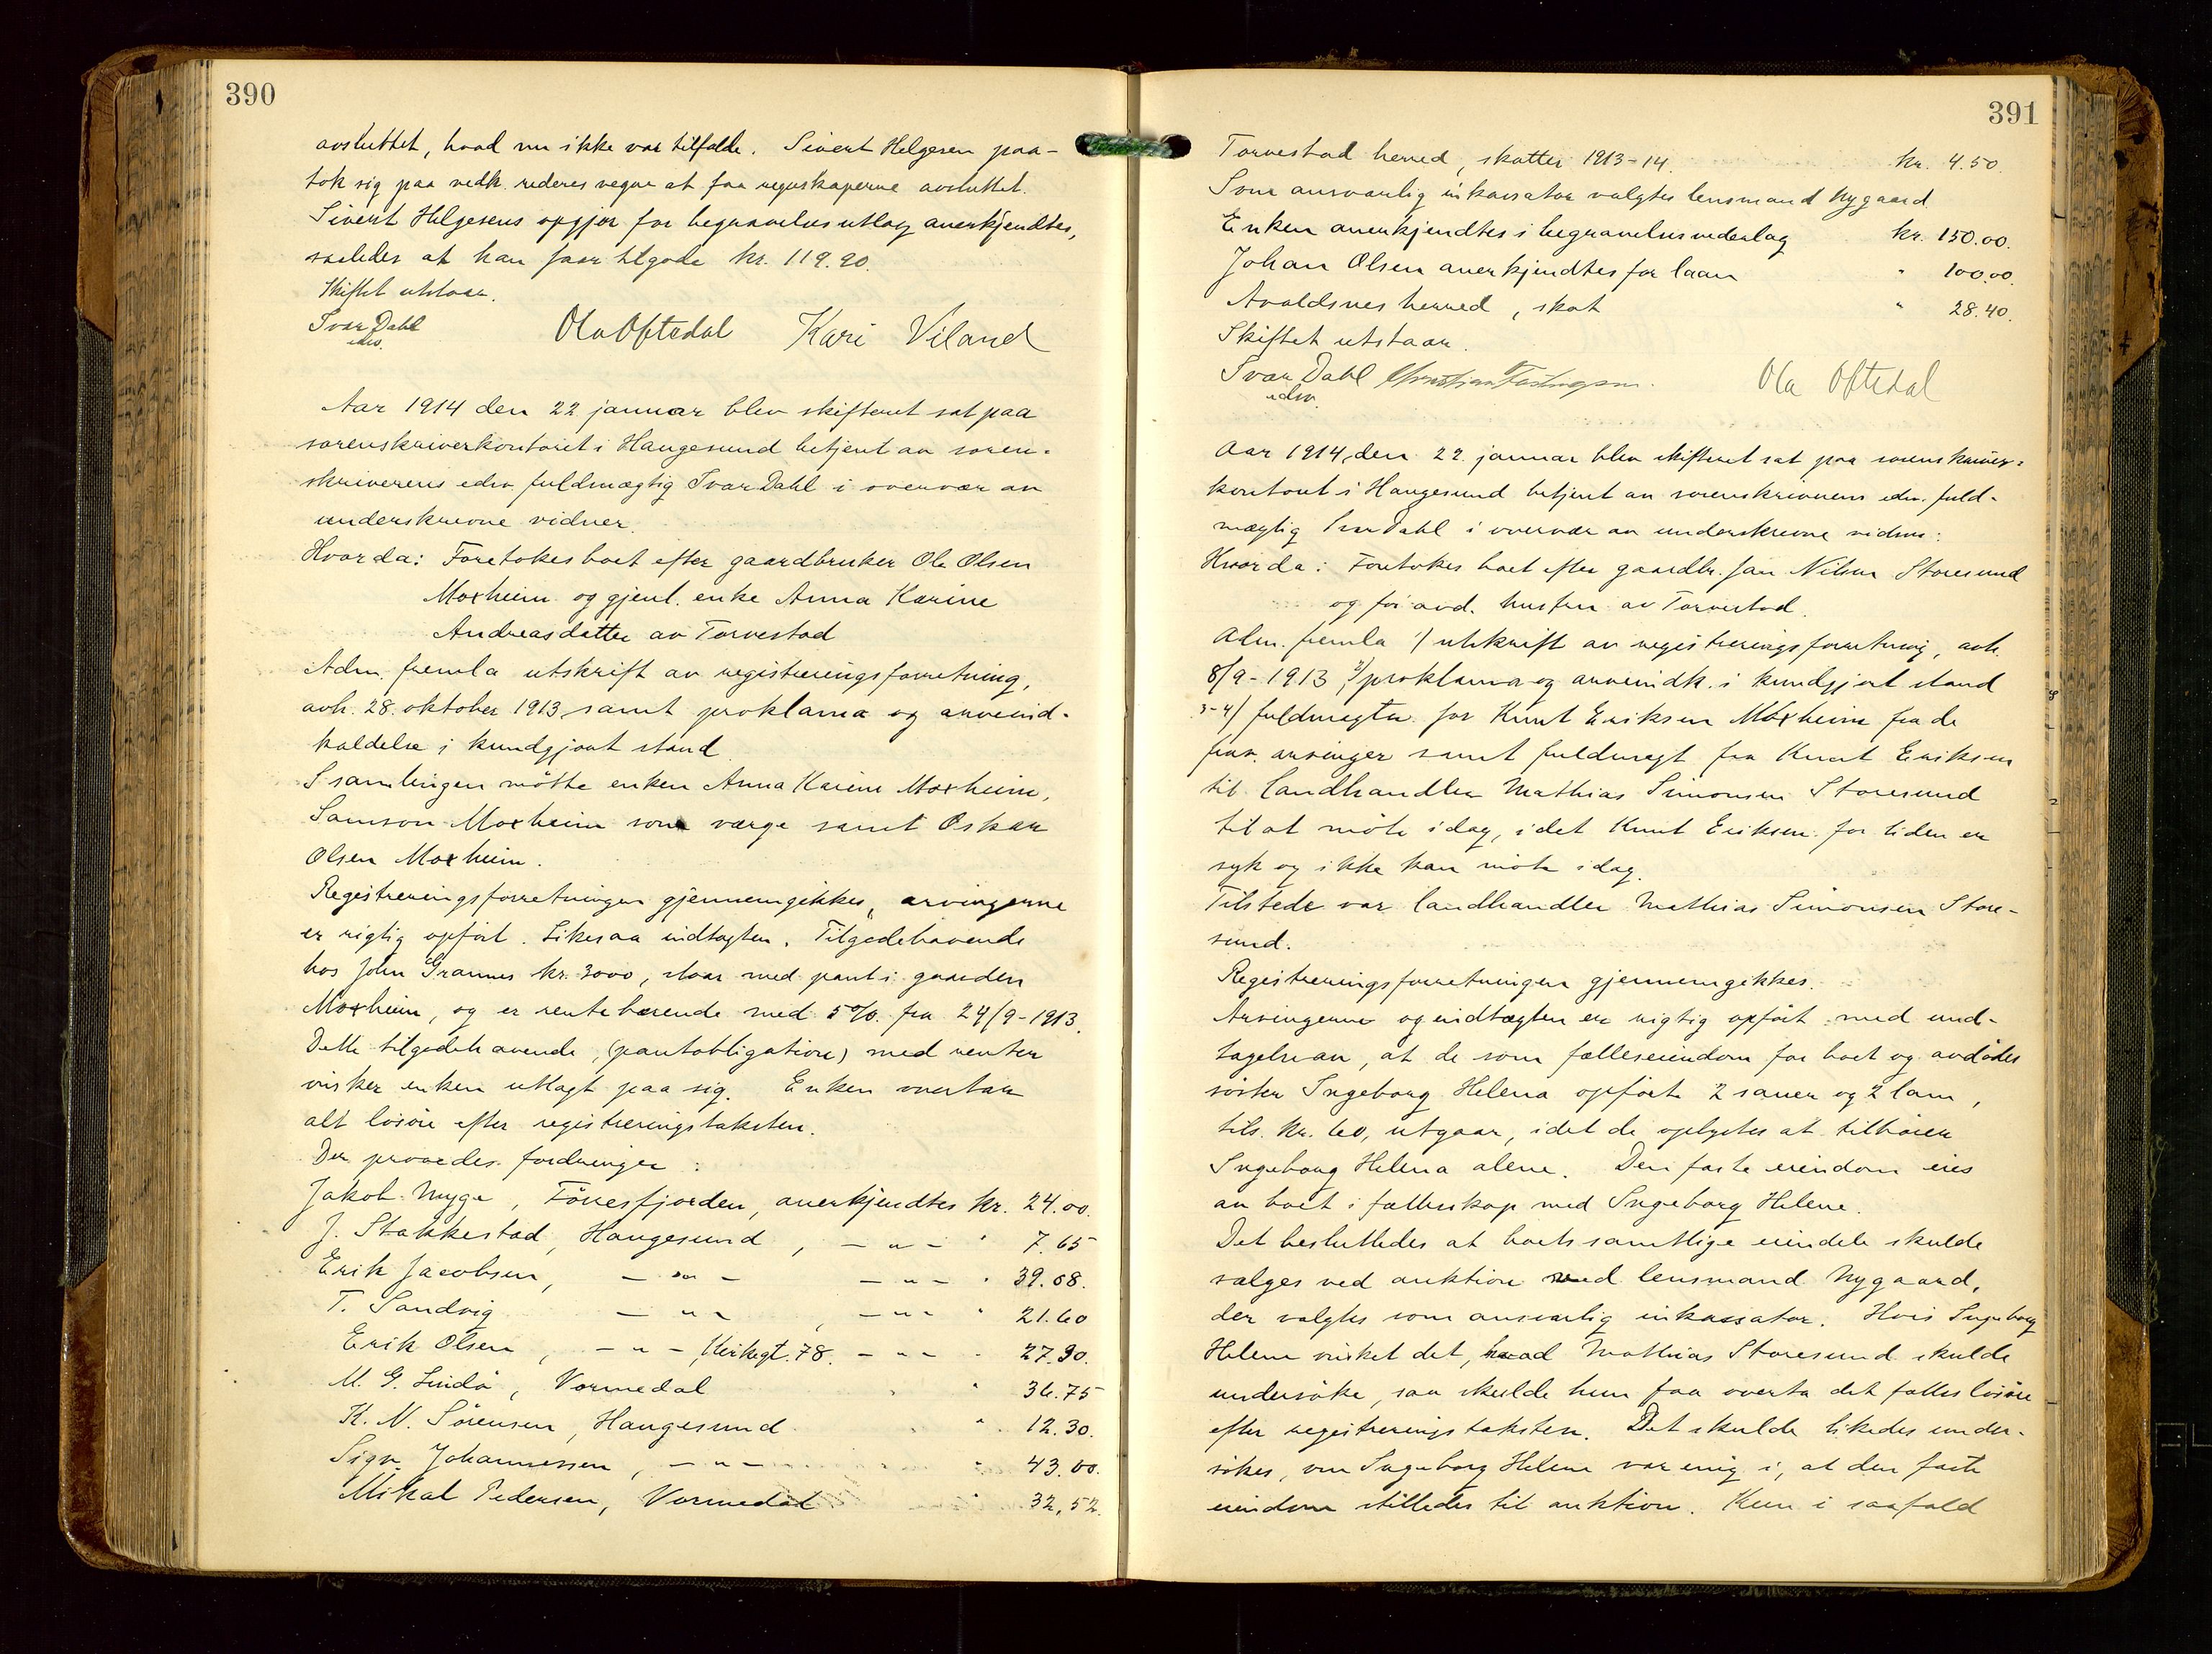 390
avsluttet, hvad nu ikke var tilfælde. Sivert Helgesen paa-
tok sig paa vedk. rederes vegne at faa regnskaperne avsluttet.
Sivert Helgesens opgjør for begravelsesutlæg anerkjendtes,
saaledes at han faar tilgode kr. 119.20.
Skiftet utstaar.
Ivar Dahl
edsv.
Ola Oftedal Kari Viland
Aar 1914 den 22 januar blev skifteret sat paa
sorenskriverkontoret i Haugesund betjent av soren-
skriverens edsv. fuldmægtig Ivar Dahl i overvær av
underskrevne vidner.
Hvorda: Foretokes boet efter gaardbruker Ole Olsen
Moxheim og gjenl. enke Anna Karine
Andreasdatter av Torvestad
Adm. fremla utskrift av registreringsforretning,
avh. 28. oktober 1913 samt proklama og arveind-
kaldelse i kundgjort stand.
I samlingen møtte enken Anna Karine Moxheim,
Samson Moxheim som værge samt Oskar
Olsen Moxheim.
Registreringsforretningen gjennemgikkes, arvingerne
er rigtig opført. Likesaa indtægten. Tilgodehavende
hos John Grannes kr. 3000, staar med pant i gaarden
Moxheim, og er rentebærende med 5%. fra 24/9-1913.
Dette tilgodehavende, (pantobligation) med renter
ønsker enken utlagt paa sig. Enken overtar
alt løsøre efter registreringstaksten.
Der prøvedes fordringer:
Jakob Nygr, Førresfjorden, anerkjendtes kr. 24.00.
J. Stakkestad, Haugesund, — " — " 7.65
Erik Jacobsen, — " — — " — " 39.08.
T. Sandvig — " — , — " — " 21.60
Erik Olsen, — " — , Kirkegt. 78. — " — " 27.90.
M. G. Lindø, Vormedal " 36.75
K. N. Sørensen, Haugesund " 12.30.
Sigv. Johannessen, — " — " 43.00.
Mikal Pedersen, Vormedal " 32,52.
391
Torvestad herred, skatter 1913-14. kr. 4.50.
Som ansvarlig inkassator valgtes lensmand Nygaard.
Enken anerkjendtes i begravelsesvederlag kr. 150.00.
Johan Olsen anerkjendtes for laan " 100.00.
Avaldsnes herred, skat " 28.40.
Skiftet utstaar.
Ivar Dahl Ola Oftedal
edsv.
Aar 1914, den 22. januar blev skifteret sat paa sorenskriver-
kontoret i Haugesund betjent av sorenskriverens edsv. fuld-
mægtig Ivar Dahl i overvær av underskrevne vidner:
Hvorda: Foretokes boet efter gaardbr. Jan Nilsen Storesund
og før avd. hustru av Torvestad.
Adm. fremla 1/ utskrift av registreringsforretning, avh.
8/9-1913, 2/ proklama og arveindk. i kundgjort stand
3-4/ fuldmagter for Knut Eriksen Moxheim fra de
frav. arvinger samt fuldmagt fra Knut Eriksen
til landhandler Mathias Simonsen Storesund
til at møte idag, idet Knut Eriksen for tiden er
syk og ikke kan møte idag.
Tilstede var landhandler Mathias Simonsen Store-
sund.
Registreringsforretningen gjennemgikkes.
Arvingerne og indtægten er rigtig opført med und-
tagelse av, at de som fælleseiendom for boet og avdødes
søster Ingeborg Helena opførte 2 sauer og 2 lam,
tils. kr. 60, utgaar, idet de oplystes at tilhører
Ingeborg Helena alene. Den faste eiendom eies
av boet i fællesskap med Ingeborg Helene.
Det besluttedes at boets samtlige eiendele skulde
sælges ved auktion ved lensmand Nygaard,
der valgtes som ansvarlig inkassator. Hvis Ingeborg
Helene ønsket det, hvad Mathias Storesund skulde
undersøke, saa skulde hun faa overta det fælles løsøre
efter registreringstaksten. Det skulde likedes under-
søkes, om Ingeborg Helene var enig i, at den faste
eiendom stilledes til auktion. Kun i saafald